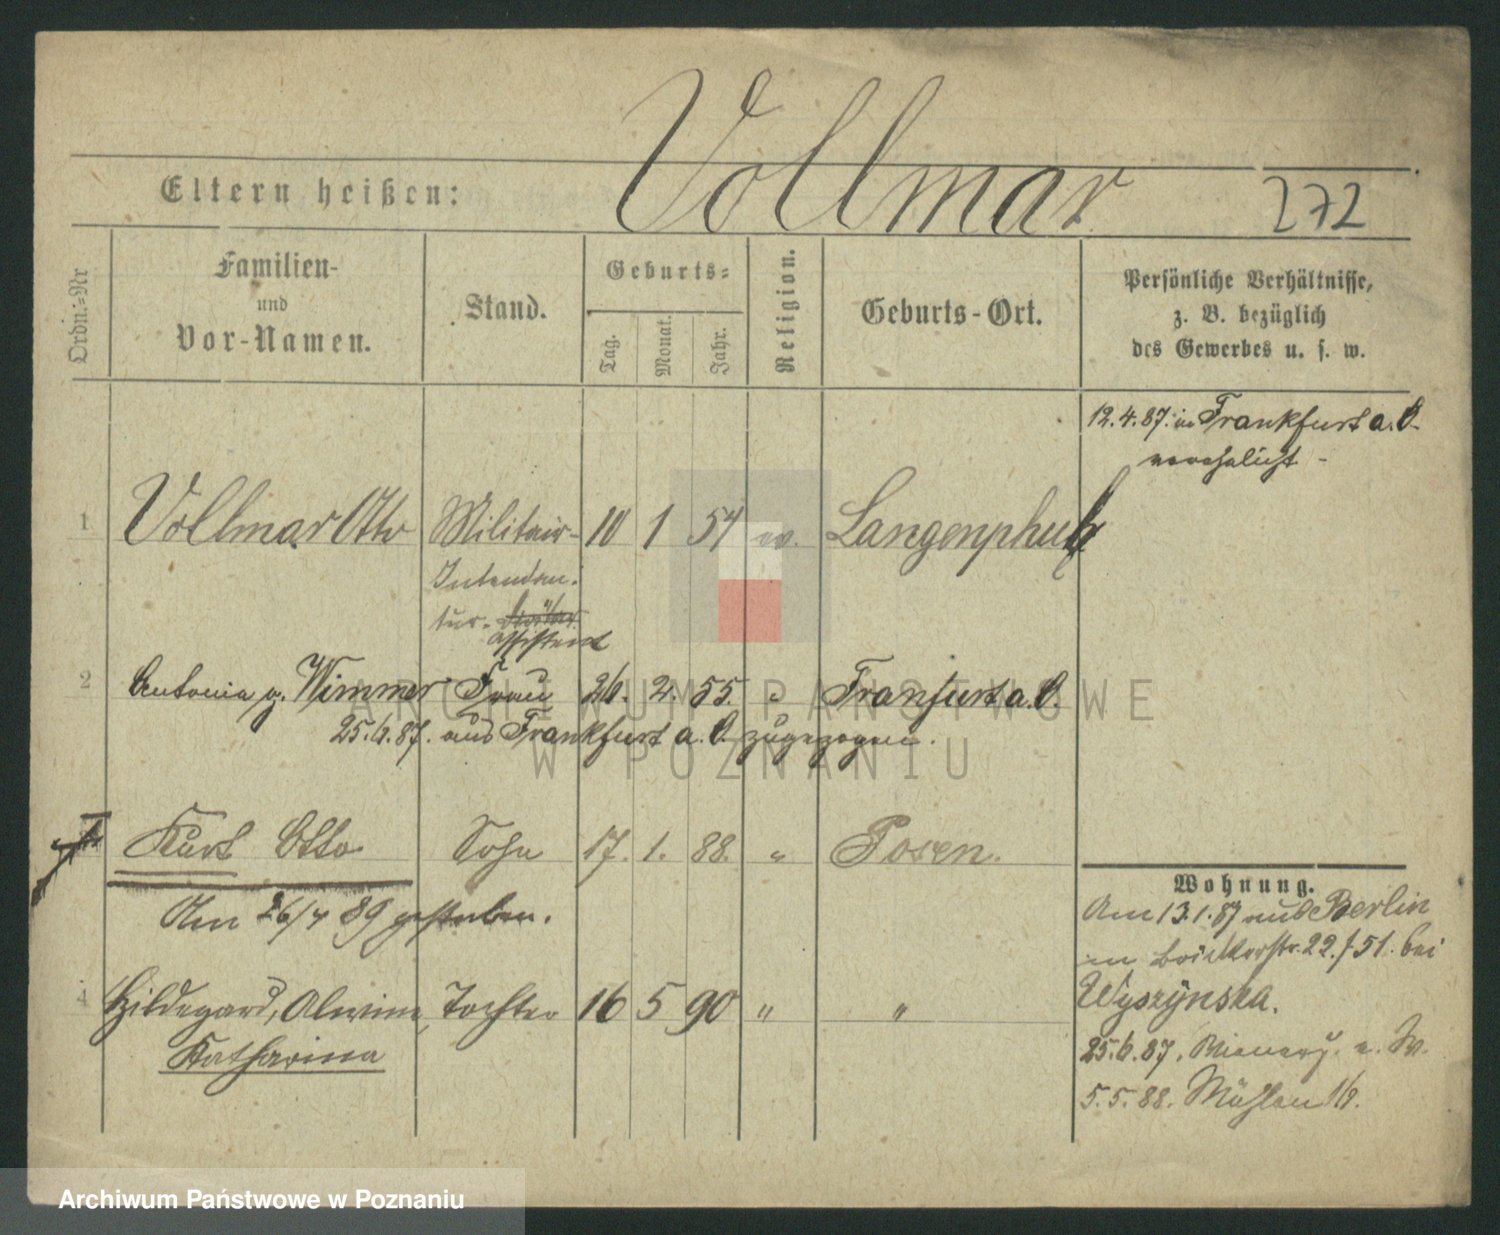 Vollmar
Eltern heißen:
272
Ordn.-Nr
Familien-
und
Vor-Namen.
Stand.
Geburts-
Tag.
Monat.
Jahr.
Religion.
Geburts-Ort.
Persönliche Verhältnisse,
z. B. bezüglich
des Gewerbes u. s. w.
12.4.87. in Frankfurt a. O.
verehelicht -
1 Vollmar Otto Militair- 10 1 54 ev. Langenpfuhl
Intendan-
tur-
Assistent
2 Antonia g. Wimmer Frau 26. 2. 55. " Franfurt a. O.
25.6.87. aus Frankfurt a. O. zugezogen.
Kurt Otto Sohn 17. 1. 88. " Posen.
Am 26/4 89 gestorben.
4 Hildegard, Alwine, Tochter 16 5 90 " "
Katharina
Wohnung.
Am 13.1.87 aus Berlin
22./51. bei
Wyszynska.
25.6.87.
5.5.88. Mühlen 16.
ARCHIWUM PAŃSTWOWE
W POZNANIU
Archiwum Państwowe w Poznaniu